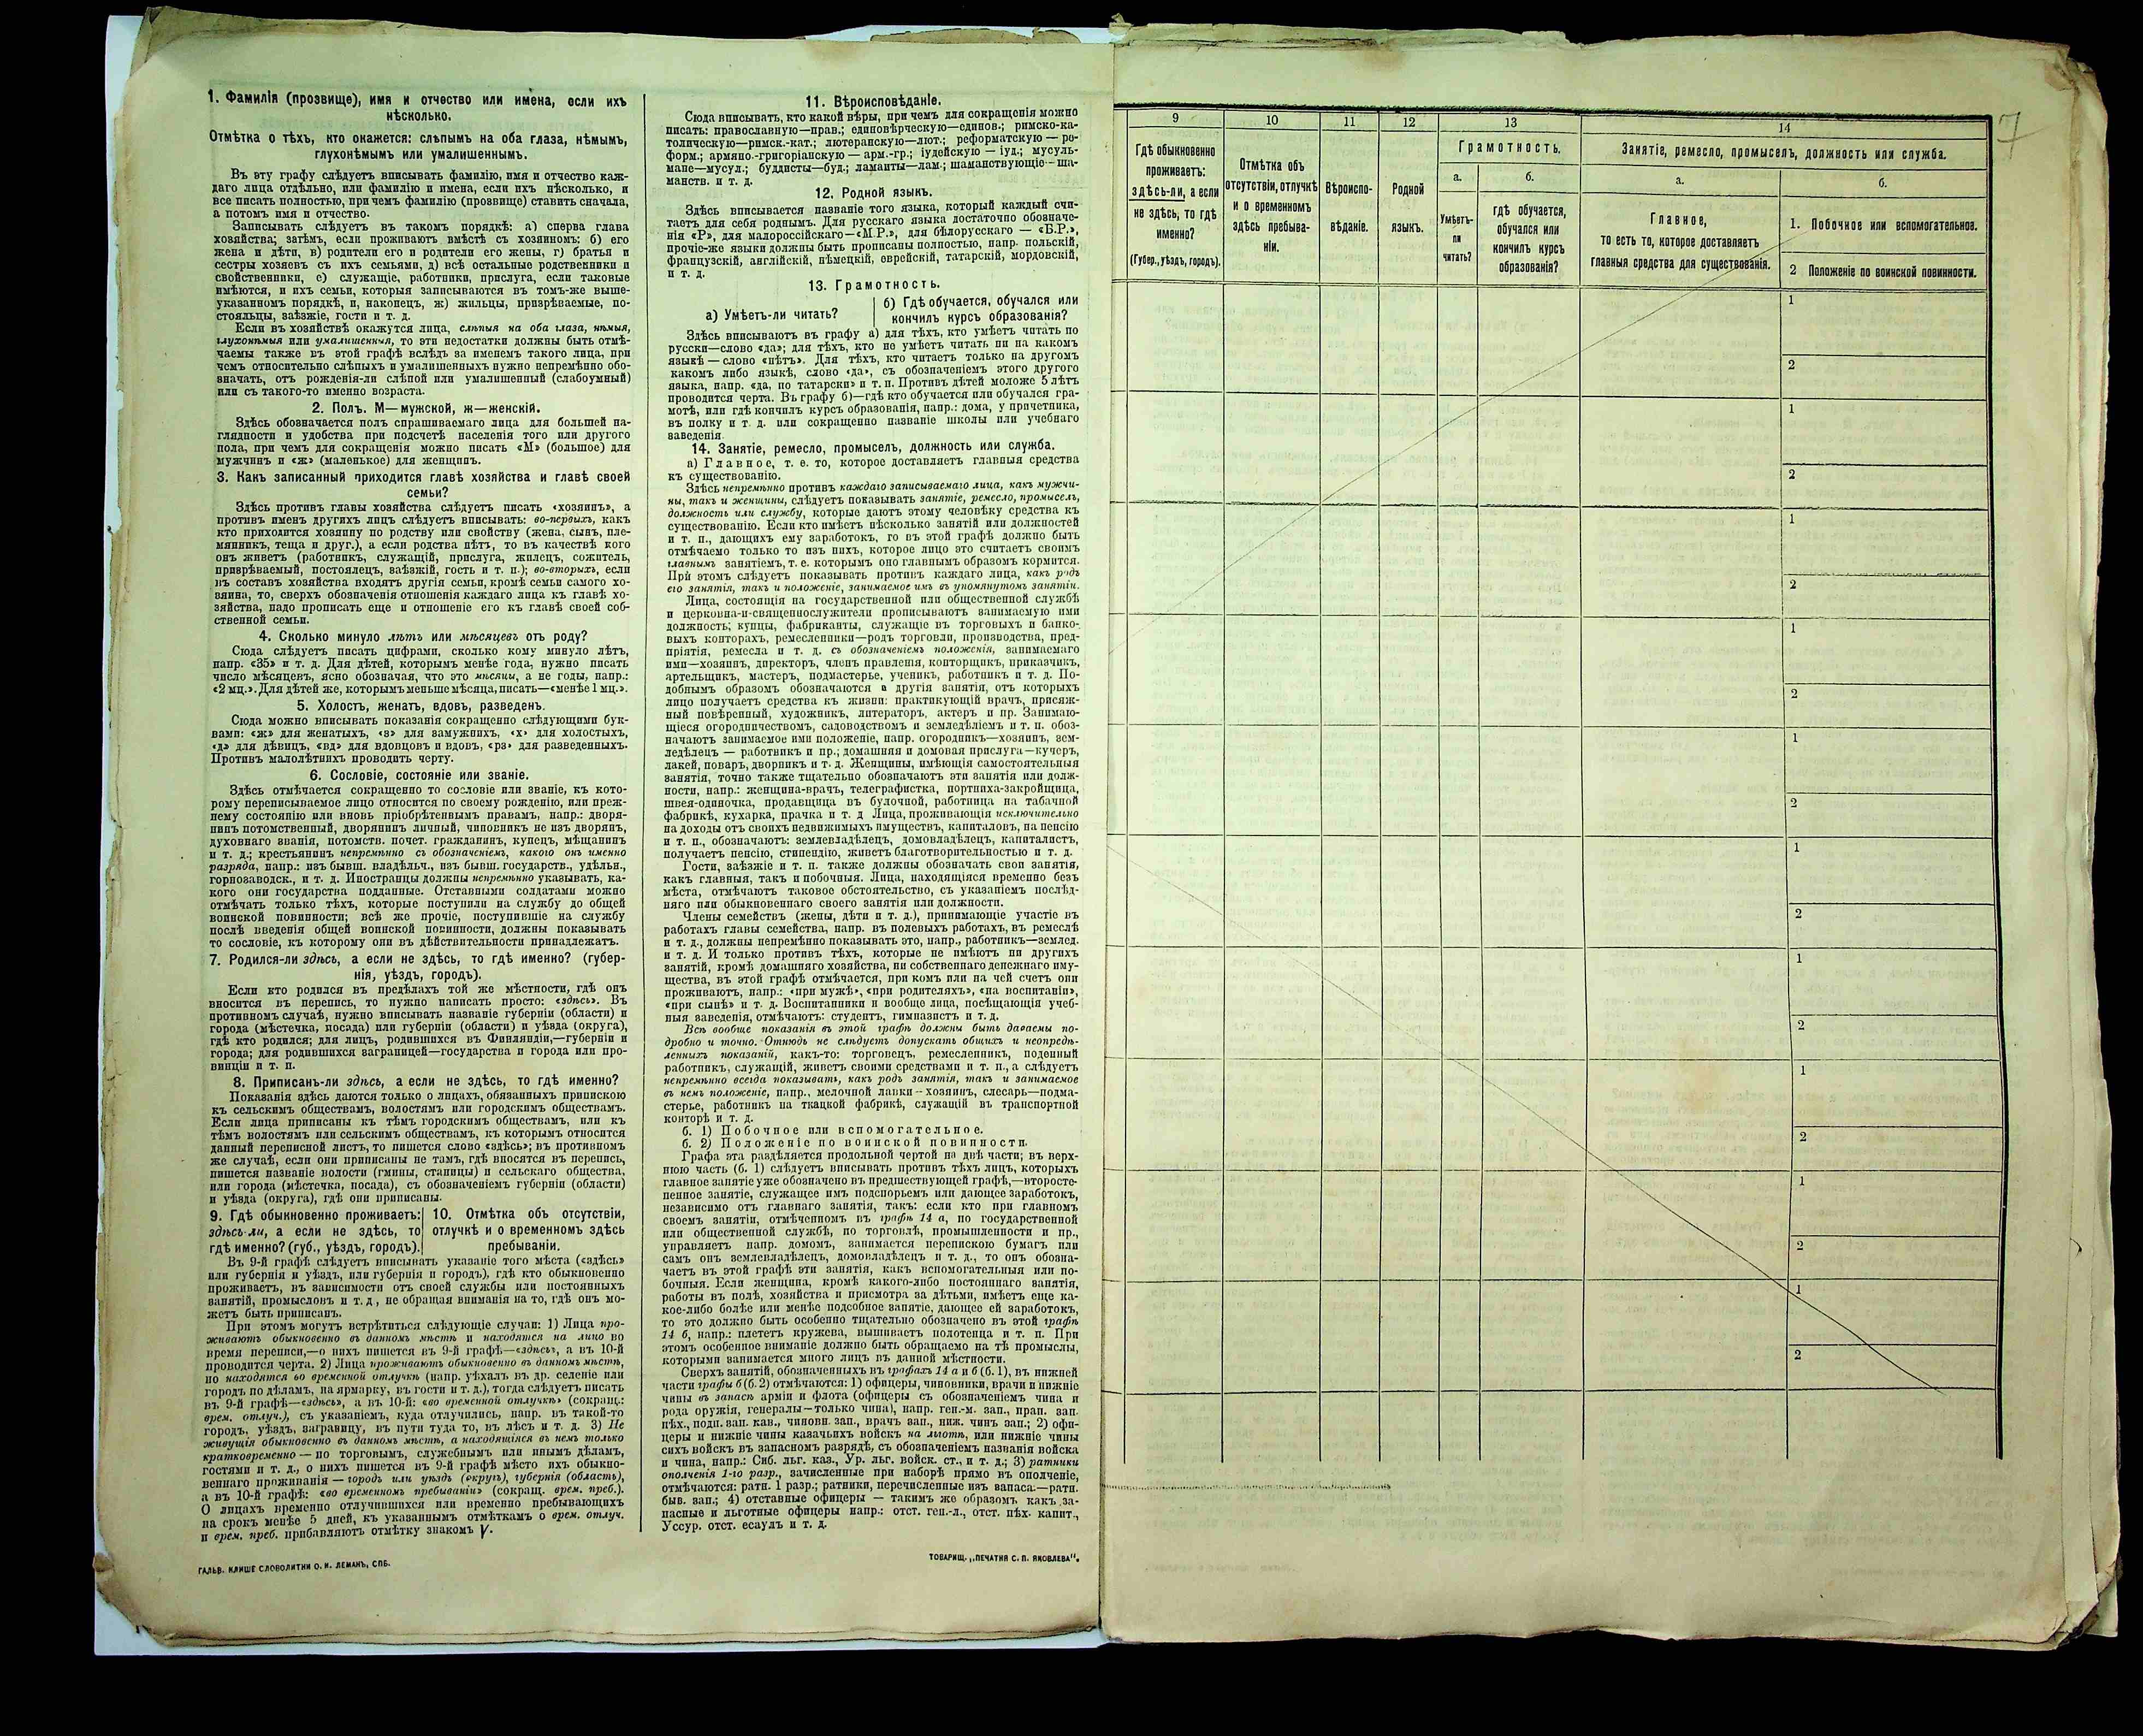 1. Фамилія (прозвище), имя и отчество или имена, если ихъ
нѣсколько.
Отмѣтка о тѣхъ, кто окажется: слѣпымъ на оба глаза, нѣмымъ,
глухонѣмымъ или умалишеннымъ.
Въ эту графу слѣдуетъ вписывать фамилію, имя и отчество каж-
даго лица отдѣльно, или фамилію и имена, если ихъ нѣсколько, и
все писать полностью, при чемъ фамилію (прозвище) ставить сначала,
а потомъ имя и отчество.
Записывать слѣдуетъ въ такомъ порядкѣ: а) сперва глава
хозяйства; затѣмъ, если проживаютъ вмѣстѣ съ хозяиномъ: б) его
жена и дѣти, в) родители его и родители его жены, г) братья и
сестры хозяевъ съ ихъ семьями, д) всѣ остальные родственники и
свойственники, е) служащіе, работники, прислуга, если таковые
имѣются, и ихъ семьи, которыя записываются въ томъ-же выше-
указанномъ порядкѣ, и, наконецъ, ж) жильцы, призрѣваемые, по-
стояльцы, заѣзжіе, гости и т. д.
Если въ хозяйствѣ окажутся лица, слѣпыя на оба глаза, нѣмыя,
глухонѣмыя или умалишенныя, то эти недостатки должны быть отмѣ-
чаемы также въ этой графѣ вслѣдъ за именемъ такого лица, при
чемъ относительно слѣпыхъ и умалишенныхъ нужно непремѣнно обо-
значать, отъ рожденія-ли слѣпой или умалишенный (слабоумный)
или съ такого-то именно возраста.
2. Полъ. М—мужской, ж—женскій.
Здѣсь обозначается полъ спрашиваемаго лица для большей на-
глядности и удобства при подсчетѣ населенія того или другого
пола, при чемъ для сокращенія можно писать «М» (большое) для
мужчинъ и «ж» (маленькое) для женщинъ.
3. Какъ записанный приходится главѣ хозяйства и главѣ своей
семьи?
Здѣсь противъ главы хозяйства слѣдуетъ писать «хозяинъ», а
противъ именъ другихъ лицъ слѣдуетъ вписывать: во-первыхъ, какъ
кто приходится хозяину по родству или свойству (жена, сынъ, пле-
мянникъ, теща и друг.), а если родства нѣтъ, то въ качествѣ кого
онъ живетъ (работникъ, служащій, прислуга, жилецъ, сожитель,
призрѣваемый, постоялецъ, заѣзжій, гость и т. п.); во-вторыхъ, если
въ составъ хозяйства входятъ другія семьи, кромѣ семьи самого хо-
зяина, то, сверхъ обозначенія отношенія каждаго лица къ главѣ хо-
зяйства, надо прописать еще и отношеніе его къ главѣ своей соб-
ственной семьи.
4. Сколько минуло лѣтъ или мѣсяцевъ отъ роду?
Сюда слѣдуетъ писать цифрами, сколько кому минуло лѣтъ,
напр. «35» и т. д. Для дѣтей, которымъ менѣе года, нужно писать
число мѣсяцевъ, ясно обозначая, что это мѣсяцы, а не годы, напр.:
«2 мц.». Для дѣтей же, которымъ меньше мѣсяца, писать—«менѣе 1 мц.».
5. Холостъ, женатъ, вдовъ, разведенъ.
Сюда можно вписывать показанія сокращенно слѣдующими бук-
вами: «ж» для женатыхъ, «з» для замужнихъ, «х» для холостыхъ,
«д» для дѣвицъ, «вд» для вдовцовъ и вдовъ, «рз» для разведенныхъ.
Противъ малолѣтнихъ проводить черту.
6. Сословіе, состояніе или званіе.
Здѣсь отмѣчается сокращенно то сословіе или званіе, къ кото-
рому переписываемое лицо относится по своему рожденію, или преж-
нему состоянію или вновь пріобрѣтеннымъ правамъ, напр.: дворя-
нинъ потомственный, дворянинъ личный, чиновникъ не изъ дворянъ,
духовнаго званія, потомств. почет. гражданинъ, купецъ, мѣщанинъ
и т. д.; крестьянинъ непремѣнно съ обозначеніемъ, какого онъ именно
разряда, напр.: изъ бывш. владѣльч., изъ бывш. государств., удѣльн.,
горнозаводск., и т. д. Иностранцы должны непремѣнно указывать, ка-
кого они государства подданные. Отставными солдатами можно
отмѣчать только тѣхъ, которые поступили на службу до общей
воинской повинности; всѣ же прочіе, поступившіе на службу
послѣ введенія общей воинской повинности, должны показывать
то сословіе, къ которому они въ дѣйствительности принадлежатъ.
7. Родился-ли здѣсь, а если не здѣсь, то гдѣ именно? (губер-
нія, уѣздъ, городъ).
Если кто родился въ предѣлахъ той же мѣстности, гдѣ онъ
вносится въ перепись, то нужно написать просто: «здѣсь». Въ
противномъ случаѣ, нужно вписывать названіе губерніи (области) и
города (мѣстечка, посада) или губерніи (области) и уѣзда (округа),
гдѣ кто родился; для лицъ, родившихся въ Финляндіи,—губерніи и
города; для родившихся заграницей—государства и города или про-
винціи и т. п.
8. Приписанъ-ли здѣсь, а если не здѣсь, то гдѣ именно?
Показанія здѣсь даются только о лицахъ, обязанныхъ припискою
къ сельскимъ обществамъ, волостямъ или городскимъ обществамъ.
Если лица приписаны къ тѣмъ городскимъ обществамъ, или къ
тѣмъ волостямъ или сельскимъ обществамъ, къ которымъ относится
данный переписной листъ, то пишется слово «здѣсь»; въ противномъ
же случаѣ, если они приписаны не тамъ, гдѣ вносятся въ перепись,
пишется названіе волости (гмины, станицы) и сельскаго общества,
или города (мѣстечка, посада), съ обозначеніемъ губерніи (области)
и уѣзда (округа), гдѣ они приписаны.
9. Гдѣ обыкновенно проживаетъ:
здѣсь-ли, а если не здѣсь, то
гдѣ именно? (губ., уѣздъ, городъ).
10. Отмѣтка объ отсутствіи,
отлучкѣ и о временномъ здѣсь
пребываніи.
Въ 9-й графѣ слѣдуетъ вписывать указаніе того мѣста («здѣсь»
или губернія и уѣздъ, или губернія и городъ), гдѣ кто обыкновенно
проживаетъ, въ зависимости отъ своей службы или постоянныхъ
занятій, промысловъ и т. д., не обращая вниманія на то, гдѣ онъ мо-
жетъ быть приписанъ.
При этомъ могутъ встрѣтиться слѣдующіе случаи: 1) Лица про-
живаютъ обыкновенно въ данномъ мѣстѣ и находятся на лицо во
время переписи,—о нихъ пишется въ 9-й графѣ—«здѣсь», а въ 10-й
проводится черта. 2) Лица проживаютъ обыкновенно въ данномъ мѣстѣ,
но находятся во временной отлучкѣ (напр. уѣхалъ въ др. селеніе или
городъ по дѣламъ, на ярмарку, въ гости и т. д.), тогда слѣдуетъ писать
въ 9-й графѣ—«здѣсь», а въ 10-й: «во временной отлучкѣ» (сокращ.:
врем. отлуч.), съ указаніемъ, куда отлучились, напр. въ такой-то
городъ, уѣздъ, заграницу, въ пути туда то, въ лѣсъ и т. д. 3) Не
живущія обыкновенно въ данномъ мѣстѣ, а находящіяся въ немъ только
кратковременно — по торговымъ, служебнымъ или инымъ дѣламъ,
гостями и т. д., о нихъ пишется въ 9-й графѣ мѣсто ихъ обыкно-
веннаго проживанія — городъ или уѣздъ (округъ), губернія (область),
а въ 10-й графѣ: «во временномъ пребываніи» (сокращ. врем. преб.).
О лицахъ временно отлучившихся или временно пребывающихъ
на срокъ менѣе 5 дней, къ указаннымъ отмѣткамъ о врем. отлуч.
и врем. преб. прибавляютъ отмѣтку знакомъ V.
ГАЛЬВ. КЛИШЕ СЛОВОЛИТНИ О. И. ЛЕМАНЪ, СПБ.
11. Вѣроисповѣданіе.
Сюда вписывать, кто какой вѣры, при чемъ для сокращенія можно
писать: православную—прав.; единовѣрческую—единов.; римско-ка-
толическую—римск.-кат.; лютеранскую—лют.; реформатскую — ре-
форм.; армяно-григоріанскую — арм.-гр.; іудейскую — іуд.; мусуль-
мане—мусул.; буддисты—буд.; ламаиты—лам.; шаманствующіе—ша-
манств. и т. д.
12. Родной языкъ.
Здѣсь вписывается названіе того языка, который каждый счи-
таетъ для себя роднымъ. Для русскаго языка достаточно обозначе-
нія «Р», для малороссійскаго—«М.Р.», для бѣлорусскаго — «Б.Р.»,
прочіе-же языки должны быть прописаны полностью, напр. польскій,
французскій, англійскій, нѣмецкій, еврейскій, татарскій, мордовскій,
и т. д.
13. Грамотность.
а) Умѣетъ-ли читать?
б) Гдѣ обучается, обучался или
кончилъ курсъ образованія?
Здѣсь вписываютъ въ графу а) для тѣхъ, кто умѣетъ читать по
русски—слово «да»; для тѣхъ, кто не умѣетъ читать ни на какомъ
языкѣ — слово «нѣтъ». Для тѣхъ, кто читаетъ только на другомъ
какомъ либо языкѣ, слово «да», съ обозначеніемъ этого другого
языка, напр. «да, по татарски» и т. п. Противъ дѣтей моложе 5 лѣтъ
проводится черта. Въ графу б)—гдѣ кто обучается или обучался гра-
мотѣ, или гдѣ кончилъ курсъ образованія, напр.: дома, у причетника,
въ полку и т. д. или сокращенно названіе школы или учебнаго
заведенія.
14. Занятіе, ремесло, промыселъ, должность или служба.
а) Главное, т. е. то, которое доставляетъ главныя средства
къ существованію.
Здѣсь непремѣнно противъ каждаго записываемаго лица, какъ мужчи-
ны, такъ и женщины, слѣдуетъ показывать занятіе, ремесло, промыселъ,
должность или службу, которые даютъ этому человѣку средства къ
существованію. Если кто имѣетъ нѣсколько занятій или должностей
и т. п., дающихъ ему заработокъ, то въ этой графѣ должно быть
отмѣчаемо только то изъ нихъ, которое лицо это считаетъ своимъ
главнымъ занятіемъ, т. е. которымъ оно главнымъ образомъ кормится.
При этомъ слѣдуетъ показывать противъ каждаго лица, какъ родъ
его занятія, такъ и положеніе, занимаемое имъ въ упомянутомъ занятіи.
Лица, состоящія на государственной или общественной службѣ
и церковна-и-священнослужители прописываютъ занимаемую ими
должность; купцы, фабриканты, служащіе въ торговыхъ и банко-
выхъ конторахъ, ремесленники—родъ торговли, производства, пред-
пріятія, ремесла и т. д. съ обозначеніемъ положенія, занимаемаго
ими—хозяинъ, директоръ, членъ правленія, конторщикъ, приказчикъ,
артельщикъ, мастеръ, подмастерье, ученикъ, работникъ и т. д. По-
добнымъ образомъ обозначаются и другія занятія, отъ которыхъ
лицо получаетъ средства къ жизни: практикующій врачъ, присяж-
ный повѣренный, художникъ, литераторъ, актеръ и пр. Занимаю-
щіеся огородничествомъ, садоводствомъ и земледѣліемъ и т. п. обоз-
начаютъ занимаемое ими положеніе, напр. огородникъ—хозяинъ, зем-
ледѣлецъ — работникъ и пр.; домашняя и домовая прислуга—кучеръ,
лакей, поваръ, дворникъ и т. д. Женщины, имѣющія самостоятельныя
занятія, точно также тщательно обозначаютъ эти занятія или долж-
ности, напр.: женщина-врачъ, телеграфистка, портниха-закройщица,
швея-одиночка, продавщица въ булочной, работница на табачной
фабрикѣ, кухарка, прачка и т. д Лица, проживающія исключительно
на доходы отъ своихъ недвижимыхъ имуществъ, капиталовъ, на пенсію
и т. п., обозначаютъ: землевладѣлецъ, домовладѣлецъ, капиталистъ,
получаетъ пенсію, стипендію, живетъ благотворительностью и т. д.
Гости, заѣзжіе и т. п. также должны обозначать свои занятія,
какъ главныя, такъ и побочныя. Лица, находящіяся временно безъ
мѣста, отмѣчаютъ таковое обстоятельство, съ указаніемъ послѣд-
няго или обыкновеннаго своего занятія или должности.
Члены семействъ (жены, дѣти и т. д.), принимающіе участіе въ
работахъ главы семейства, напр. въ полевыхъ работахъ, въ ремеслѣ
и т. д., должны непремѣнно показывать это, напр., работникъ—землед.
и т. д. И только противъ тѣхъ, которые не имѣютъ ни другихъ
занятій, кромѣ домашняго хозяйства, ни собственнаго денежнаго иму-
щества, въ этой графѣ отмѣчается, при комъ или на чей счетъ они
проживаютъ, напр.: «при мужѣ», «при родителяхъ», «на воспитаніи»,
«при сынѣ» и т. д. Воспитанники и вообще лица, посѣщающія учеб-
ныя заведенія, отмѣчаютъ: студентъ, гимназистъ и т. д.
Всѣ вообще показанія въ этой графѣ должны быть даваемы по-
дробно и точно. Отнюдь не слѣдуетъ допускать общихъ и неопредѣ-
ленныхъ показаній, какъ-то: торговецъ, ремесленникъ, поденный
работникъ, служащій, живетъ своими средствами и т. п., а слѣдуетъ
непремѣнно всегда показывать, какъ родъ занятія, такъ и занимаемое
въ немъ положеніе, напр., мелочной лавки—хозяинъ, слесарь—подма-
стерье, работникъ на ткацкой фабрикѣ, служащій въ транспортной
конторѣ и т. д.
б. 1) Побочное или вспомогательное.
б. 2) Положеніе по воинской повинности.
Графа эта раздѣляется продольной чертой на двѣ части; въ верх-
нюю часть (б. 1) слѣдуетъ вписывать противъ тѣхъ лицъ, которыхъ
главное занятіе уже обозначено въ предшествующей графѣ,—второсте-
пенное занятіе, служащее имъ подспорьемъ или дающее заработокъ,
независимо отъ главнаго занятія, такъ: если кто при главномъ
своемъ занятіи, отмѣченномъ въ графѣ 14 а, по государственной
или общественной службѣ, по торговлѣ, промышленности и пр.,
управляетъ напр. домомъ, занимается перепискою бумагъ или
самъ онъ землевладѣлецъ, домовладѣлецъ и т. д., то онъ обозна-
чаетъ въ этой графѣ эти занятія, какъ вспомогательныя или по-
бочныя. Если женщина, кромѣ какого-либо постояннаго занятія,
работы въ полѣ, хозяйства и присмотра за дѣтьми, имѣетъ еще ка-
кое-либо болѣе или менѣе подсобное занятіе, дающее ей заработокъ,
то это должно быть особенно тщательно обозначено въ этой графѣ
14 б, напр.: плететъ кружева, вышиваетъ полотенца и т. п. При
этомъ особенное вниманіе должно быть обращаемо на тѣ промыслы,
которыми занимается много лицъ въ данной мѣстности.
Сверхъ занятій, обозначенныхъ въ графахъ 14 а и б (б. 1), въ нижней
части графы б (б. 2) отмѣчаются: 1) офицеры, чиновники, врачи и нижніе
чины въ запасѣ арміи и флота (офицеры съ обозначеніемъ чина и
рода оружія, генералы—только чина), напр. ген.-м. зап., прап. зап.
пѣх., подп. зап. кав., чиновн. зап., врачъ зап., ниж. чинъ зап.; 2) офи-
церы и нижніе чины казачьихъ войскъ на льготѣ, или нижніе чины
сихъ войскъ въ запасномъ разрядѣ, съ обозначеніемъ названія войска
и чина, напр.: Сиб. льг. каз., Ур. льг. войск. ст., и т. д.; 3) ратники
ополченія 1-го разр., зачисленные при наборѣ прямо въ ополченіе,
отмѣчаются: ратн. 1 разр.; ратники, перечисленные изъ запаса:—ратн.
быв. зап.; 4) отставные офицеры — такимъ же образомъ какъ за-
пасные и льготные офицеры напр.: отст. ген.-л., отст. пѣх. капит.,
Уссур. отст. есаулъ и т. д.
ТОВАРИЩ. „ПЕЧАТНЯ С. П. ЯКОВЛЕВА".
7
9
10
11
12
13
14
Гдѣ обыкновенно
проживаетъ:
здѣсь-ли, а если
не здѣсь, то гдѣ
именно?
(Губер., уѣздъ, городъ).
Отмѣтка объ
отсутствіи, отлучкѣ
и о временномъ
здѣсь пребыва-
ніи.
Вѣроиспо-
вѣданіе.
Родной
языкъ.
Грамотность.
а.
Умѣетъ-
ли
читать?
б.
гдѣ обучается,
обучался или
кончилъ курсъ
образованія?
Занятіе, ремесло, промыселъ, должность или служба.
а.
Главное,
то есть то, которое доставляетъ
главныя средства для существованія.
б.
1. Побочное или вспомогательное.
2 Положеніе по воинской повинности.
1
2
1
2
1
2
1
2
1
2
1
2
1
2
1
2
1
2
1
2